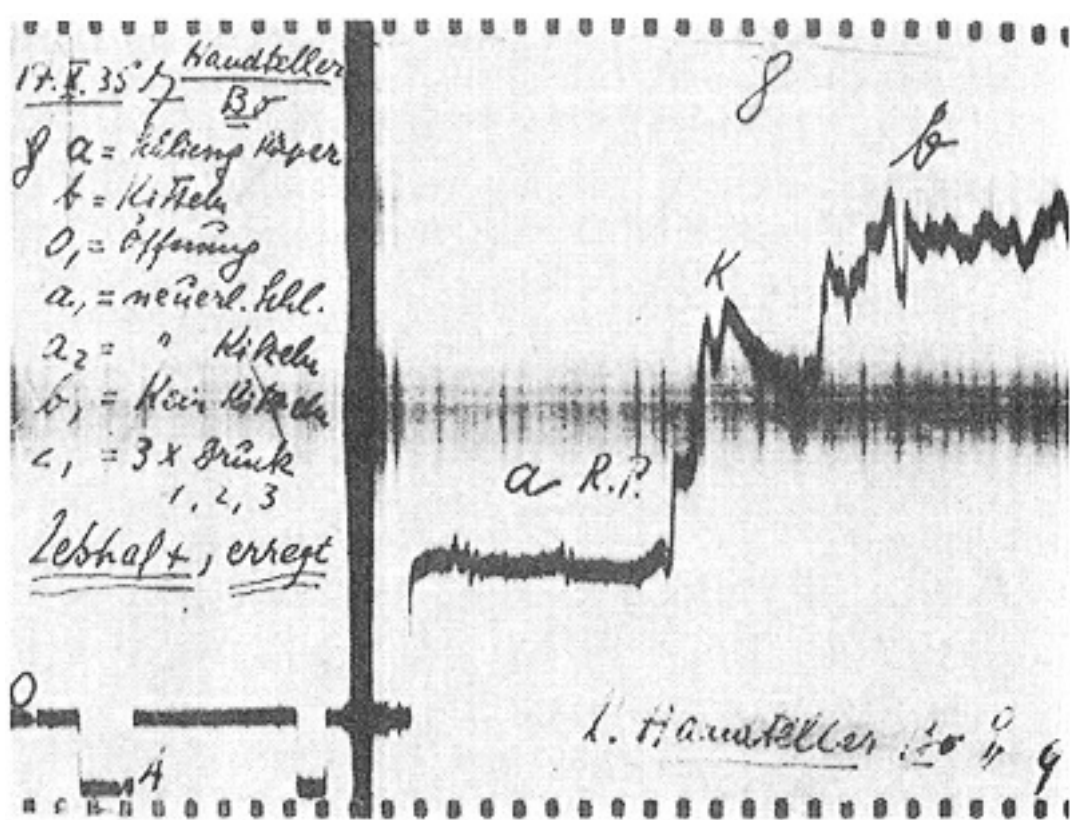 17. V. 35 Handteller
Bσ
8 a = Schliessung Körper
b = Kitzeln
O₁ = Öffnung
a₁ = neuerl. Schl.
a₂ = " Kitzeln
b₁ = Kein Kitzeln
c₁ = 3 x Druck
1, 2, 3
Lebhaft, erregt
8
b
K
a R.P.
O
A
L. Handteller